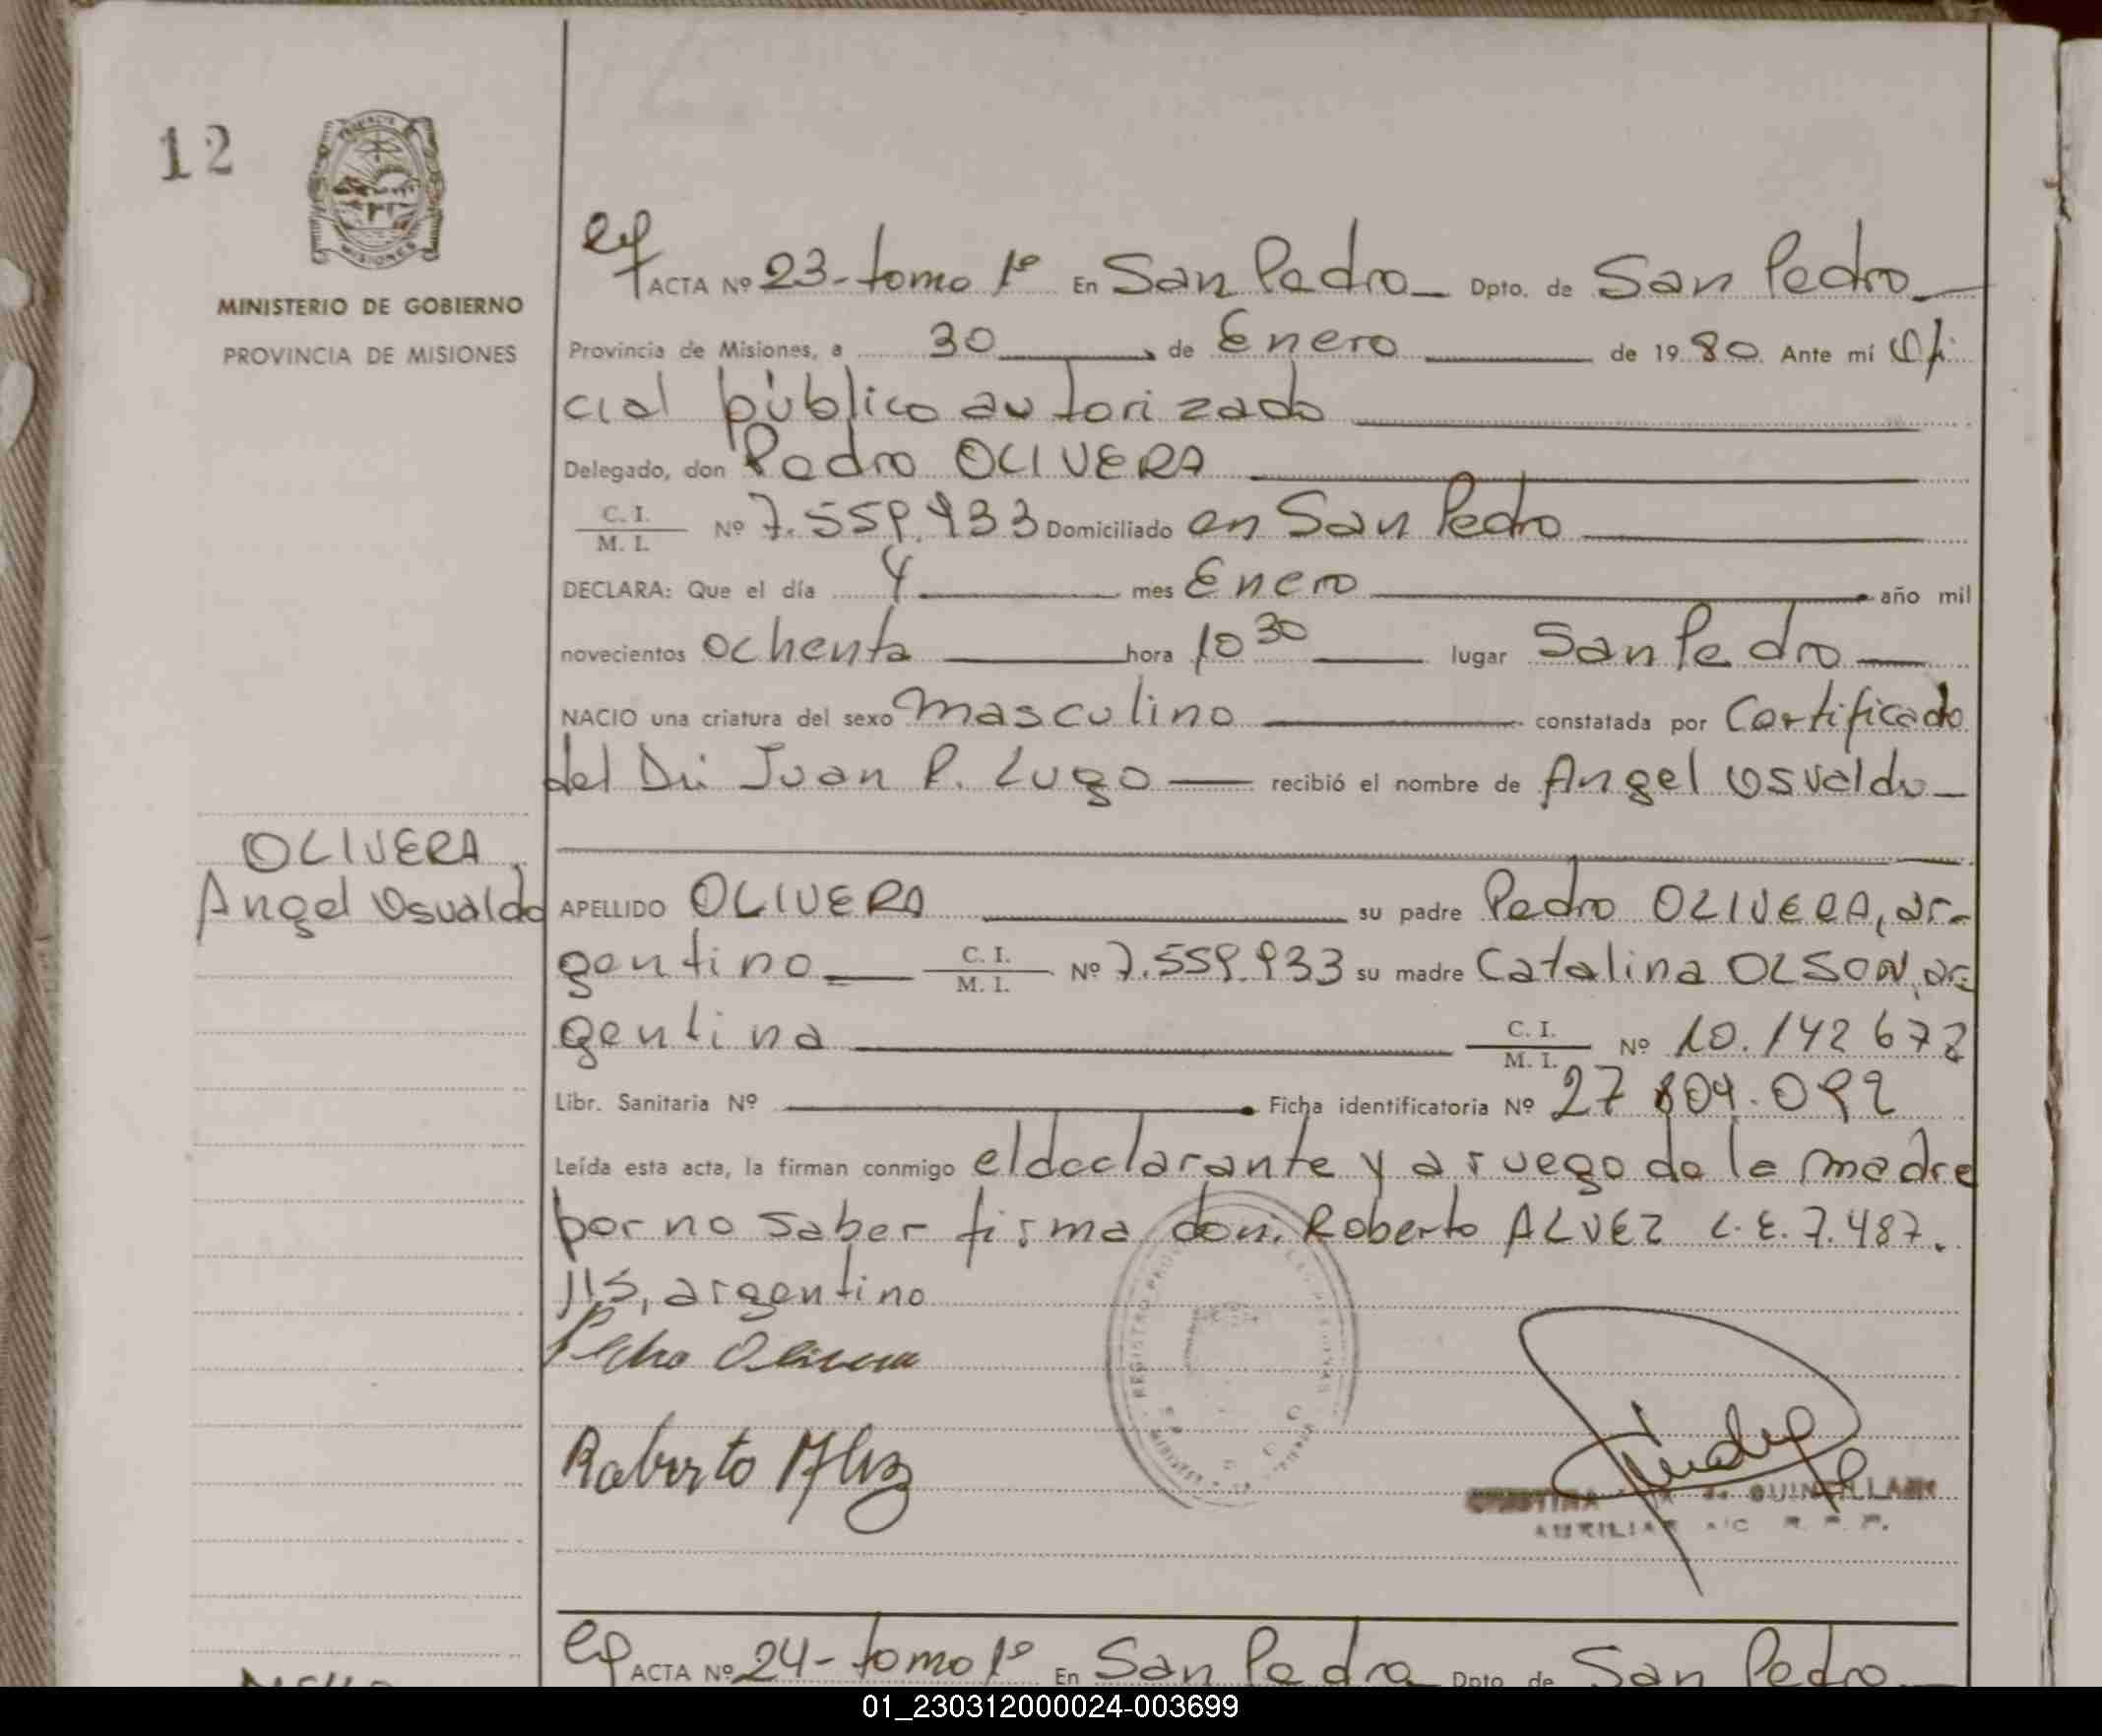 12
MINISTERIO DE GOBIERNO
PROVINCIA DE MISIONES
ACTA Nº 23-tomo 1º En San Pedro Dpto. de San Pedro
Provincia de Misiones, a 30 de Enero de 1980. Ante mí Ofi
cial público autorizado
Delegado, don Pedro OLIVERA
C. I.
M. I. Nº 7.559.933 Domiciliado en San Pedro
DECLARA: Que el día 4 mes Enero año mil
novecientos ochenta hora 10 30 lugar San Pedro
NACIO una criatura del sexo masculino constatada por Certificado
del Dr. Juan R. Lugo recibió el nombre de Angel Osvaldo
OLIVERA,
Angel Osvaldo
APELLIDO OLIVERA su padre Pedro OLIVERA, ar-
gentino C. I.
M. I. Nº 7.559.933 su madre Catalina OLSON, ar-
gentina C. I.
M. I. Nº 10.142 672
Libr. Sanitaria Nº Ficha identificatoria Nº 27 804.092
Leída esta acta, la firman conmigo el declarante y a ruego de la madre
por no saber firma don: Roberto ALVEZ L.E. 7.487.
115, argentino
Pedro Olivera
Roberto Alvez
AUXILIAR A/C R. P. P.
ACTA Nº 24-tomo 1º En San Pedro Dpto de San Pedro
01_230312000024-003699